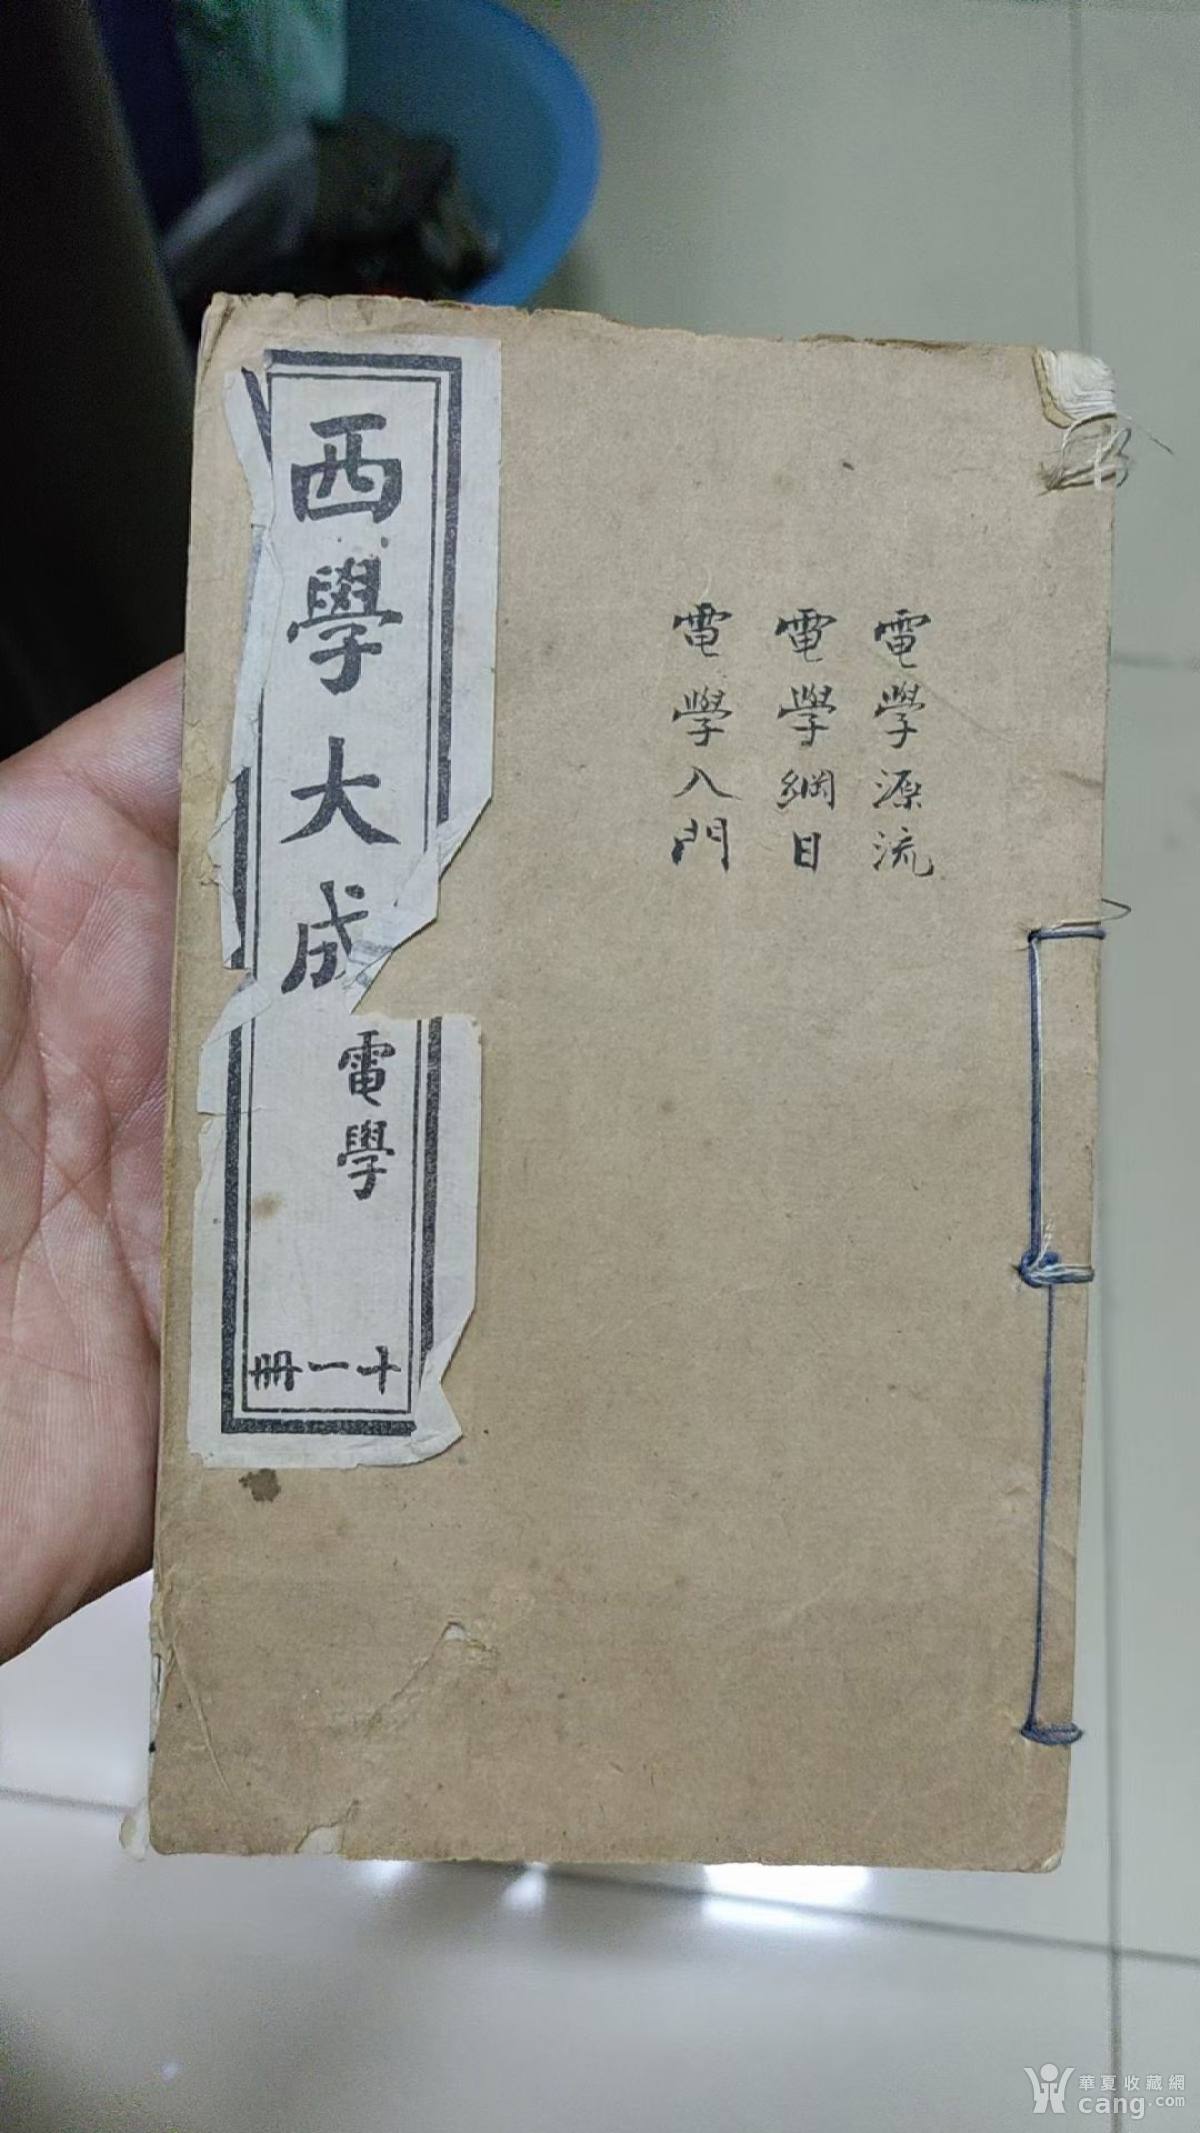 電學源流
電學綱目
電學入門
西學大成
電學
十一冊
華夏收藏網
cang.com